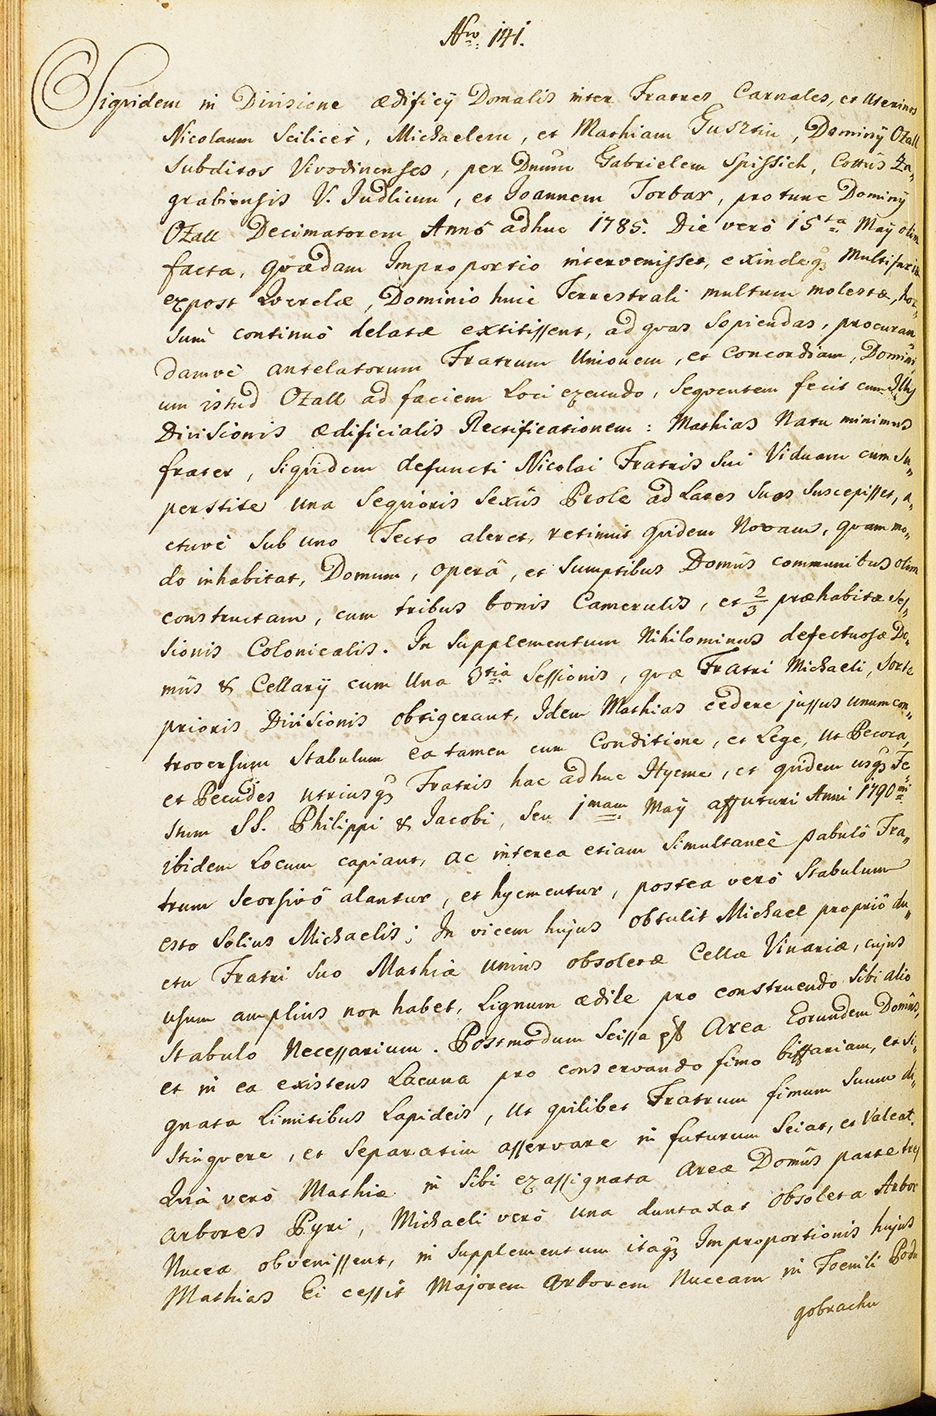 Nro 141.
Siquidem in Divisione ædificÿ Domalis inter Fratres Carnales, et Uterinos
Nicolaum Scilicèt, Michaelem, et Mathiam Gusztin, Dominÿ Ozall
Subditos Vivodinenses, per Dnum Gabrielem Spissich, Cottûs Za„
grabiensis V. Judlium, et Joannem Torbar, protunc Dominÿ
Ozall Decimatorem Annô adhuc 1785. Die verò 15ta Maÿ olim
facta, quædam Improportio intervenisset, exindeq3 Multifariæ
expost Querelæ, Dominio huic Terrestrali multum molestæ, hor„
sum continuò delatæ extitissent, ad quas sopiendas, procuran
damvè antelatorum Fratrum Unionem, et Concordiam, Domini„
um istud Ozall ad faciem Loci exeundo, Sequentem fecit cum Illis
Divisionis ædificialis Rectificationem: Mathias Natu minimus
frater, Siquidem defuncti Nicolai Fratris Sui Viduam cum Su„
perstite una Sequioris Sexûs Prole ad Lares Suos Suscepisset, a„
ctuvè Sub uno Tecto aleret, retinuit quidem Novam, quam mo„
do inhabitat, Domum, operâ, et Sumptibus Domûs communibus olim
constructam, cum tribus bonis Camerulis, et 2/3 præhabitæ Ses„
sionis Colonicalis. In Supplementum Nihilominus defectuosæ Do„
mûs & Cellarÿ cum Una 3tia Sessionis, quæ Fratri Michaeli, Sorte
prioris Divisionis obtigerant, Idem Mathias cedere jussus unum con„
troversum Stabulum ea tamen cum Conditione, et Lege, Ut Pecora,
et Pecudes utriusq3 Fratris hac adhuc Hyeme, et quidem usq3 Fe„
stum SS. Philippi & Jacobi, Seu 1mam Maÿ affuturi Anni 1790mi
ibidem Locum capiant, ac interea etiam Simultaneè pabulô Fra„
trum Seorsivô alantur, et hyementur, postea verò Stabulum
esto Solius Michaelis; In vicem hujus obtulit Michael propriô du„
ctu Fratri Suo Mathiæ Unius obsoletæ Cellæ Vinariæ, cujus
usum amplius non habet, Lignum ædile pro construendo Sibi alio
Stabulo Necessarium. Postmodum Scissa est Area Eorundem Domûs,
et in ea existens Lacuna pro conservando fimo biffariam, et Si„
gnata Limitibus Lapideis, Ut quilibet Fratrum fimum Suum di„
stinguere, et Separatim asservare in futurum Sciat, et Valeat.
Quia verò Mathiæ in Sibi exassignata Areæ Domûs parte tres
arbores Pyri, Michaeli verò una duntaxat obsoleta Arbor
Nucea obvenissent, in Supplementum itaq3 Improportionis hujus
Mathias Ei cessit Majorem Arborem Nuceam in Foenili Pod
gobrachu